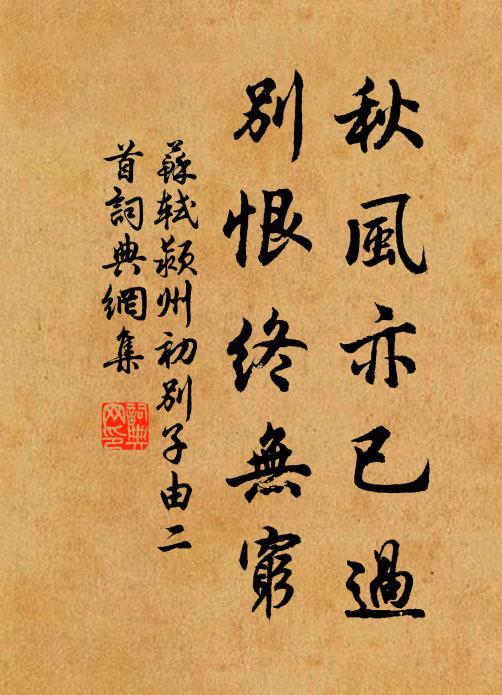 秋風亦已過
別恨終無窮
蘇軾潁州初別子由二
首詞典網集
詞典
网印